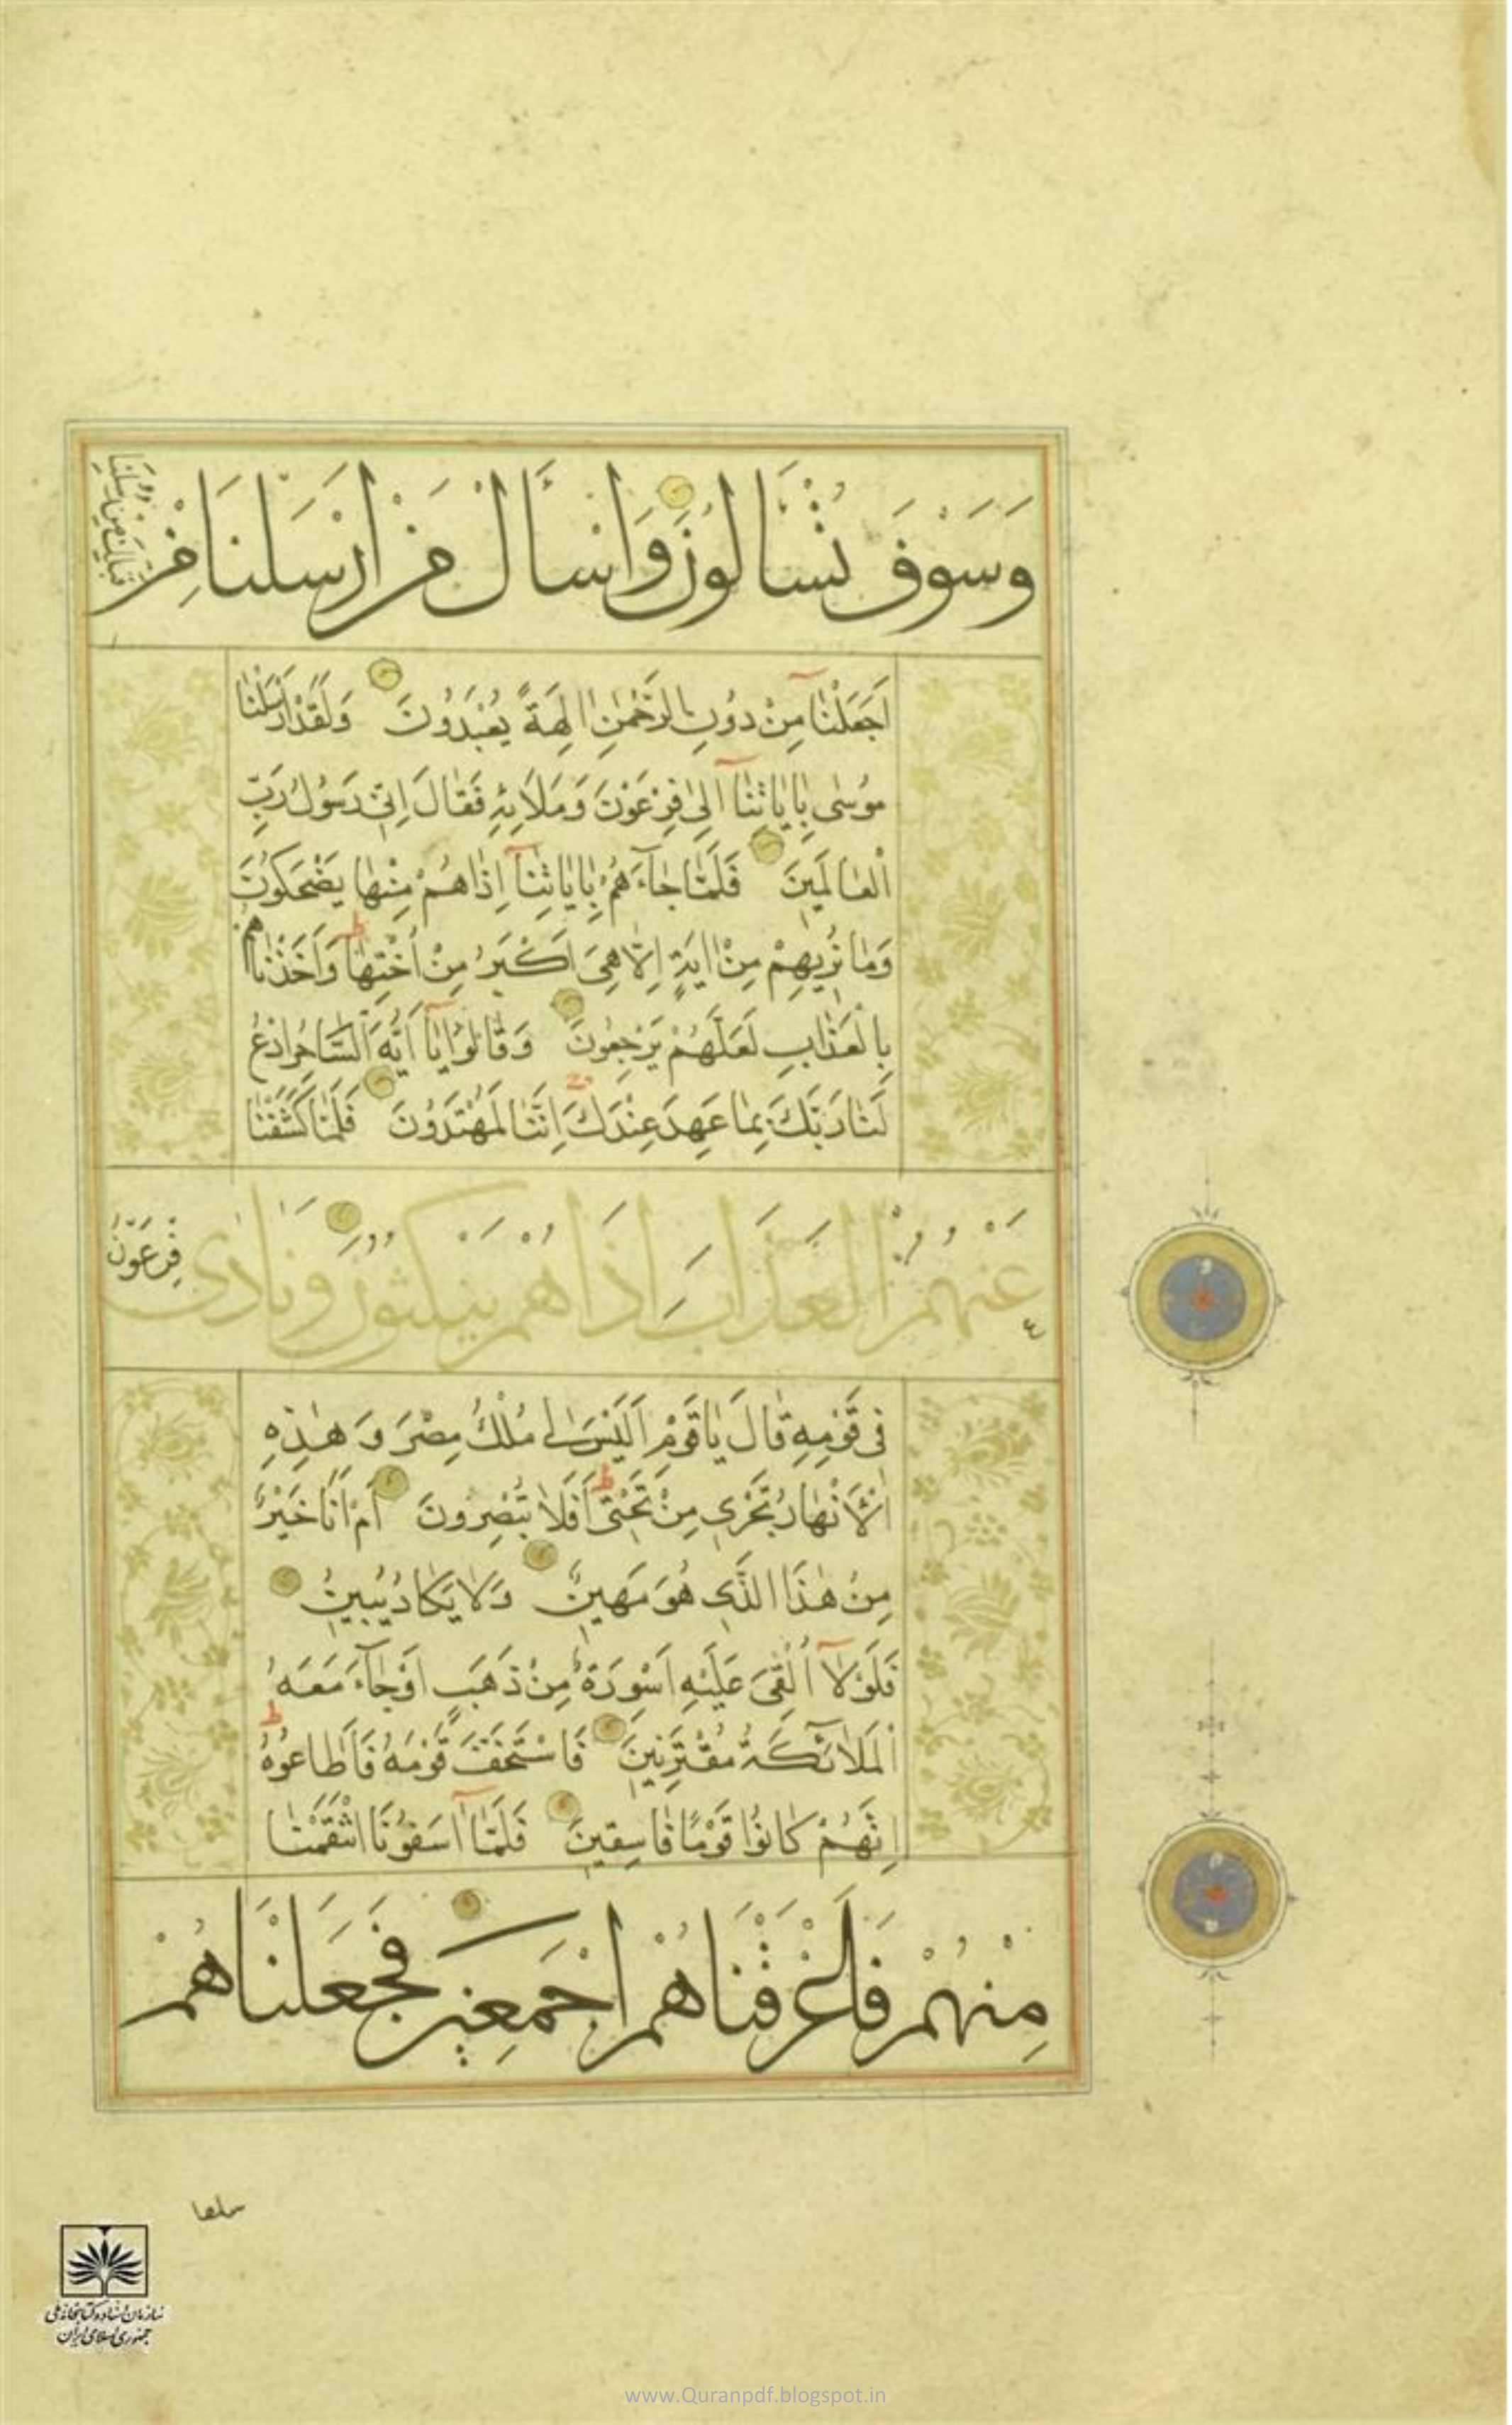 وَسَوْفَ تُسْئَالُونَ وَاسْئَالْ مَنْ اَرْسَلْنَا مِنْ
قَبْلِكَ مِنْ رُسُلِنَا
اَجَعَلْنَا مِنْ دُونِ الرَّحْمٰنِ اٰلِهَةً يُعْبَدُونَ وَلَقَدْ اَرْسَلْنَا
مُوسٰى بِاٰيَاتِنَا اِلٰى فِرْعَوْنَ وَمَلَائِهِ فَقَالَ اِنِّي رَسُولُ رَبِّ
الْعَالَمِينَ فَلَمَّا جَآءَهُمْ بِاٰيَاتِنَآ اِذَا هُمْ مِنْهَا يَضْحَكُونَ
وَمَا نُرِيهِمْ مِنْ اٰيَةٍ اِلَّا هِيَ اَكْبَرُ مِنْ اُخْتِهَا وَاَخَذْنَاهُمْ
بِالْعَذَابِ لَعَلَّهُمْ يَرْجِعُونَ وَقَالُوا يَآ اَيُّهَ السَّاحِرُ ادْعُ
لَنَا رَبَّكَ بِمَا عَهِدَ عِنْدَكَ اِنَّنَا لَمُهْتَدُونَ فَلَمَّا كَشَفْنَا
عَنْهُمُ الْعَذَابَ اِذَا هُمْ يَنْكُثُونَ وَنَادٰى
فِرْعَوْنُ
٤
فِي قَوْمِهِ قَالَ يَا قَوْمِ اَلَيْسَ لِي مُلْكُ مِصْرَ وَهٰذِهِ
الْاَنْهَارُ تَجْرِي مِنْ تَحْتِي اَفَلَا تُبْصِرُونَ اَمْ اَنَا خَيْرٌ
مِنْ هٰذَا الَّذِي هُوَ مَهِينٌ وَلَا يَكَادُ يُبِينُ
فَلَوْلَآ اُلْقِيَ عَلَيْهِ اَسْوِرَةٌ مِنْ ذَهَبٍ اَوْ جَآءَ مَعَهُ
الْمَلَآئِكَةُ مُقْتَرِنِينَ فَاسْتَخَفَّ قَوْمَهُ فَاَطَاعُوهُ
اِنَّهُمْ كَانُوا قَوْمًا فَاسِقِينَ فَلَمَّآ اٰسَفُونَا انْتَقَمْنَا
مِنْهُمْ فَاَغْرَقْنَاهُمْ اَجْمَعِينَ فَجَعَلْنَاهُمْ
سلفا
سازمان اسناد و کتابخانه ملی
جمهوری اسلامی ایران
www.Quranpdf.blogspot.in